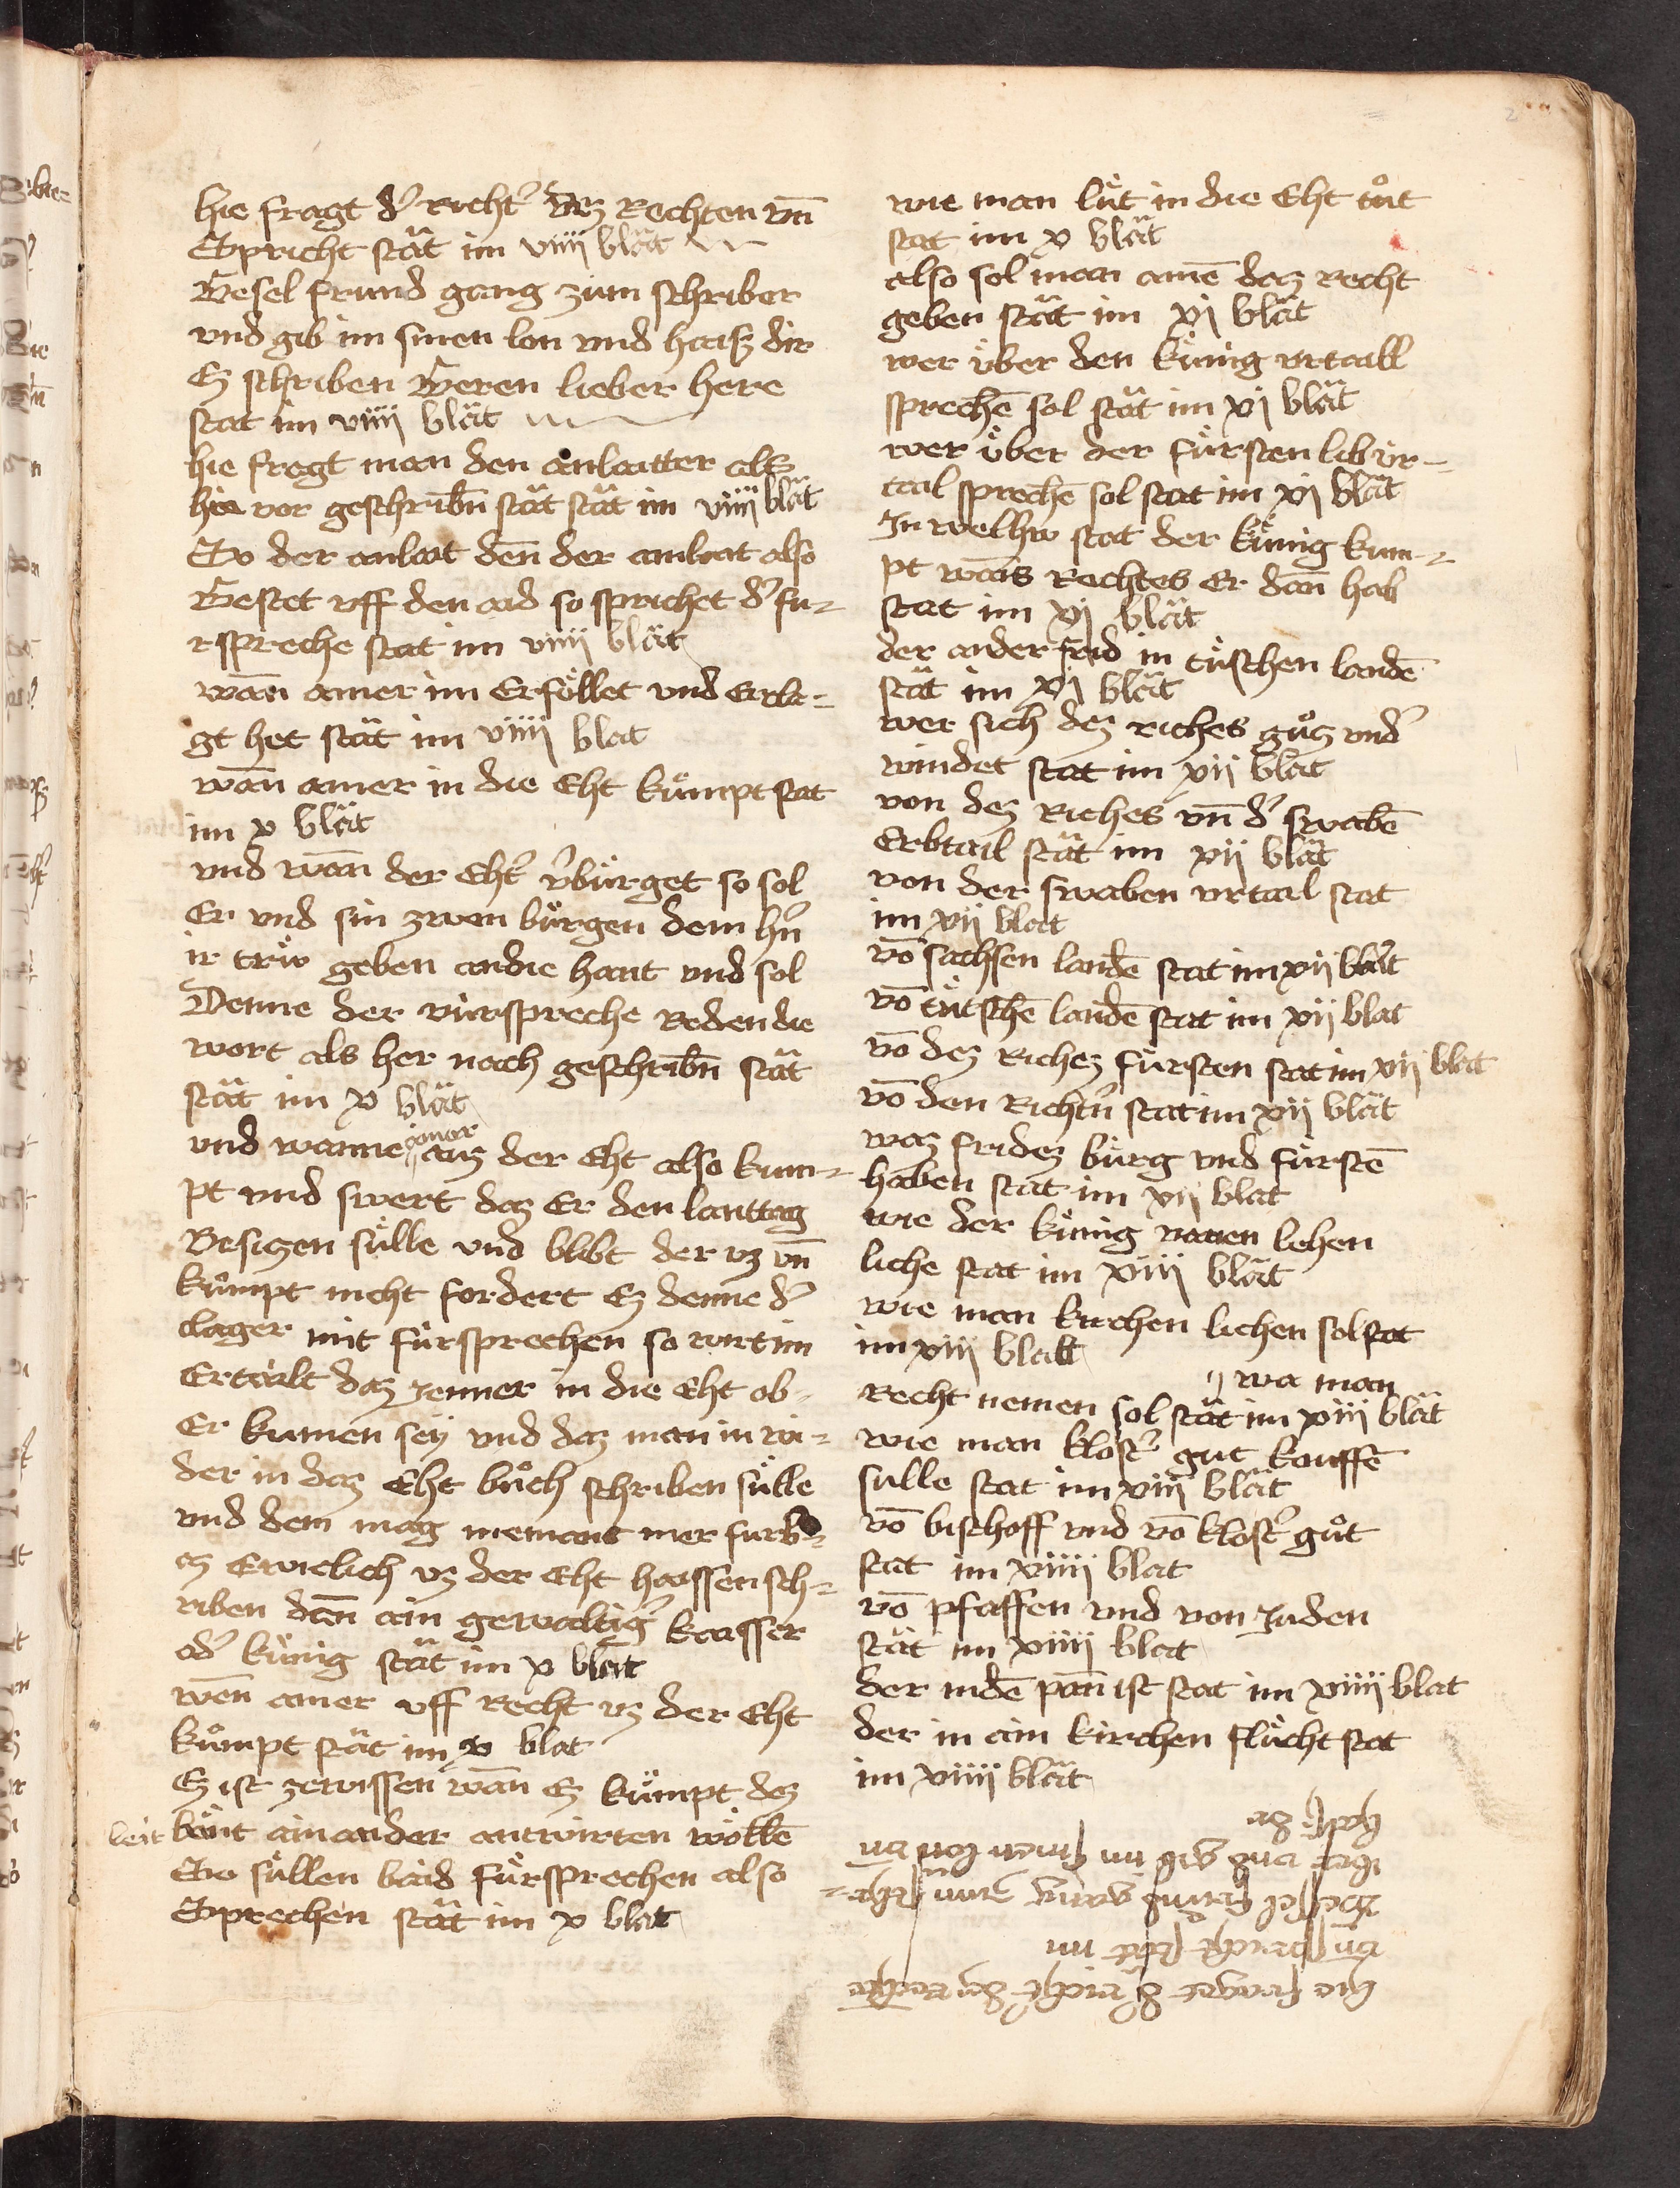 hie fragt d᷒ Richt᷒ dez Rechten vn̄
Spricht stăt im viiij blăt
Gesel frund gang zum schriber
vnd gib im sinen lon vnd haisz dir
Ez schriben Geren lieber here
stat im viiij blăt
hie fregt man den anlaitter als
hie vor geschribn̄ stăt stăt im viiij blăt
So der anlait den̄ der anlait also
Gestet vff den aid so sprichet d᷒ fu-
rspreche stat im viiij blăt
wan̄ ainer im Erföllet vnd Erla-
gt het stăt im viiij blat
wan̄ ainer in die Eht kümpt stat
im x blăt
vnd wan̄ der Eht᷒ v᷒bürget so sol
Er vnd sin zwen bürgen dem hn᷒
ir trüw geben an die hant vnd sol
Denne der vürspreche Reden die
wort als her nach geschribn̄ stăt
stăt im x blăt
vnd wanne ainer ausz der Eht also kum-
pt vnd swert daz Er den lanttag
Besiczen sülle vnd blibt der vz vn̄
kümpt nicht fordert Ez denne d᷒
clager mit fürsprechen so wirt im
Ertailt daz Jenner in die Eht ob
Er kumen sey vnd daz man in wi-
der in daz Eht buͦch schriben sülle
vnd dem mag niemant mer furb-
az Ewielich vz der Eht haissen sch-
riben dan̄ ain gewaltig᷒ kaisser
od᷒ künig stăt im x blăt
wen̄ ainer vff Recht vz der Eht
kümpt stăt im x blat
Ez ist zewissen wan̄ Ez kümpt daz
leit bant ain ander antwirten wöllē
So süllen baid fürsprechen also
Sprechen stăt im x blat
wie man lüt in die Eht tuͦt
stat im x blăt
also sol man ainē daz Recht
geben stăt im xj blăt
wer über den künig vrtaill
sprechē sol stăt im xj blăt
wer über der fürsten lib ür-
tail sprechē sol stat im xj blăt
In welhw stat der künig kum-
pt wans Rechtes Er dan̄ hab
stat im xj blăt
der ander frid in tüschen landē
stăt im xj blăt
wer sich dez riches guͦcz vnd᷒
windet stat im xij blăt
von dez Riches vn̄ d᷒ swabē
Erbtail stăt im xij blăt
von der swaben vrtail stat
im xij blat
vō sachsen landē stat im xij blăt
vō tütschē landē stat im xij blat
vō dez Richez fürsten stat im xij blat
vō den Richtn᷒ stat im xij blăt
waz fridez bürg vnd fürstē
haben stat im xij blat
wie der künig vanen lehen
liche stat im xiij blăt
wie man kirchen lichen sol stat
im xiij blatt
wa man
Recht nemen sol stăt im xiij blăt
wie man klost᷒ gut kouffē
sülle stat im xiij blăt
vō bischoff vnd vō klost᷒ guͦt
stat im xiiij blat
vō pfaffen vnd von Juden
stăt im xiiij blat
der in dē pan̄ ist stat im xiiij blat
der in ain kirchen flücht stat
im xiiij blăt
hie fraget d᷒ richt᷒ dez rechte
vn̄ spricht stăt im
Gesel frund gang zum schr-
iber vnd gib im sinen lon vn̄
haisz dir